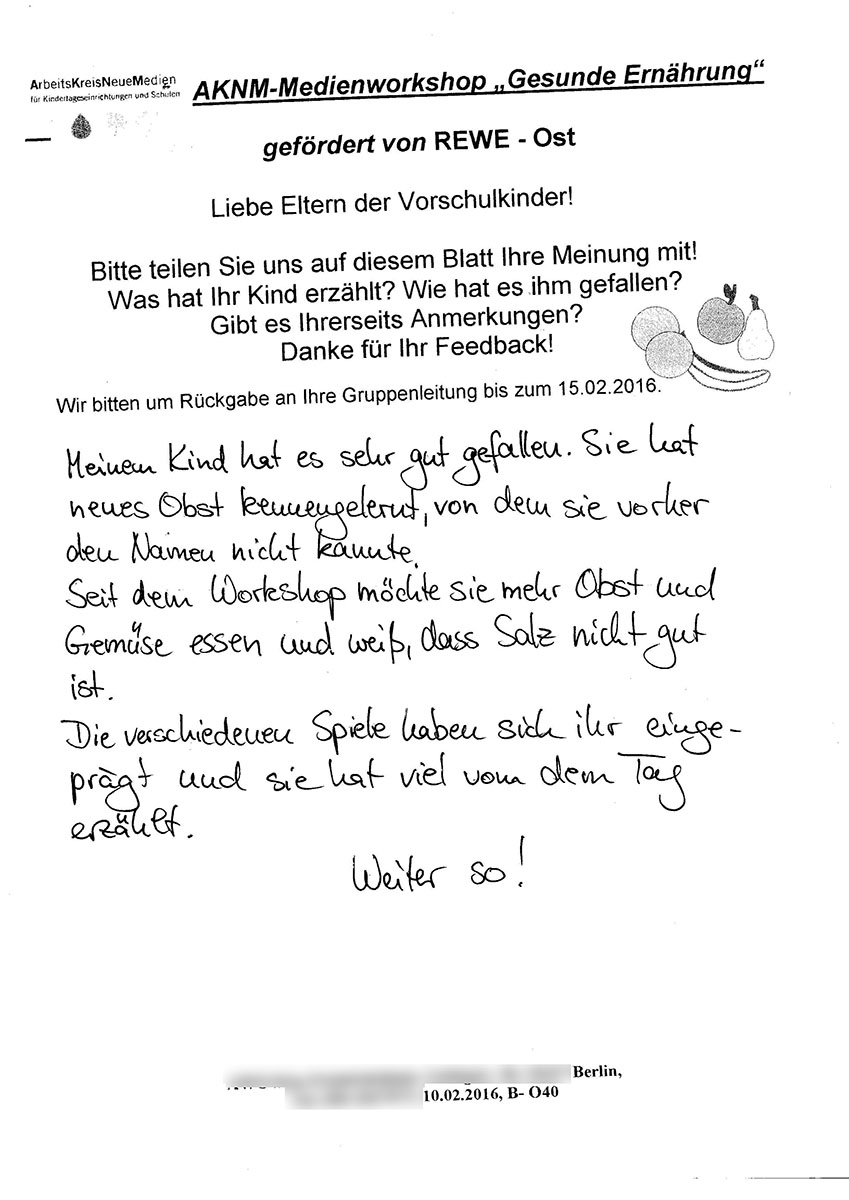 ArbeitsKreisNeueMedien
für Kindertageseinrichtungen und Schulen
AKNM-Medienworkshop „Gesunde Ernährung“
gefördert von REWE - Ost
Liebe Eltern der Vorschulkinder!
Bitte teilen Sie uns auf diesem Blatt Ihre Meinung mit!
Was hat Ihr Kind erzählt? Wie hat es ihm gefallen?
Gibt es Ihrerseits Anmerkungen?
Danke für Ihr Feedback!
Wir bitten um Rückgabe an Ihre Gruppenleitung bis zum 15.02.2016.
Meinem Kind hat es sehr gut gefallen. Sie hat
neues Obst kennengelernt, von dem sie vorher
den Namen nicht kannte.
Seit dem Workshop möchte sie mehr Obst und
Gemüse essen und weiß, dass Salz nicht gut
ist.
Die verschiedenen Spiele haben sich ihr einge-
prägt und sie hat viel vom dem Tag
erzählt.
Weiter so!
Berlin,
10.02.2016, B- O40